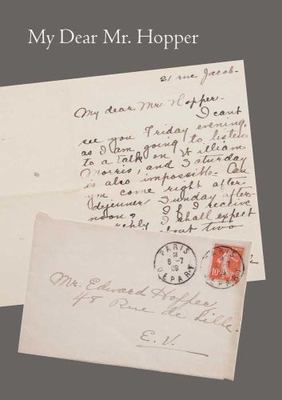 My Dear Mr. Hopper
21 rue Jacob.
My dear Mr. Hopper.
I cant
see you Friday evening,
as I am going to listen
to a talk on William
Morris, and Saturday
is also impossible. Can
you come right after
dejeuner Sunday after-
noon? If I receive
reply I shall expect
about two
PARIS
6-7
09
DEPART
10
Mr. Edward Hopper
48 Rue de Lille.
E.V.